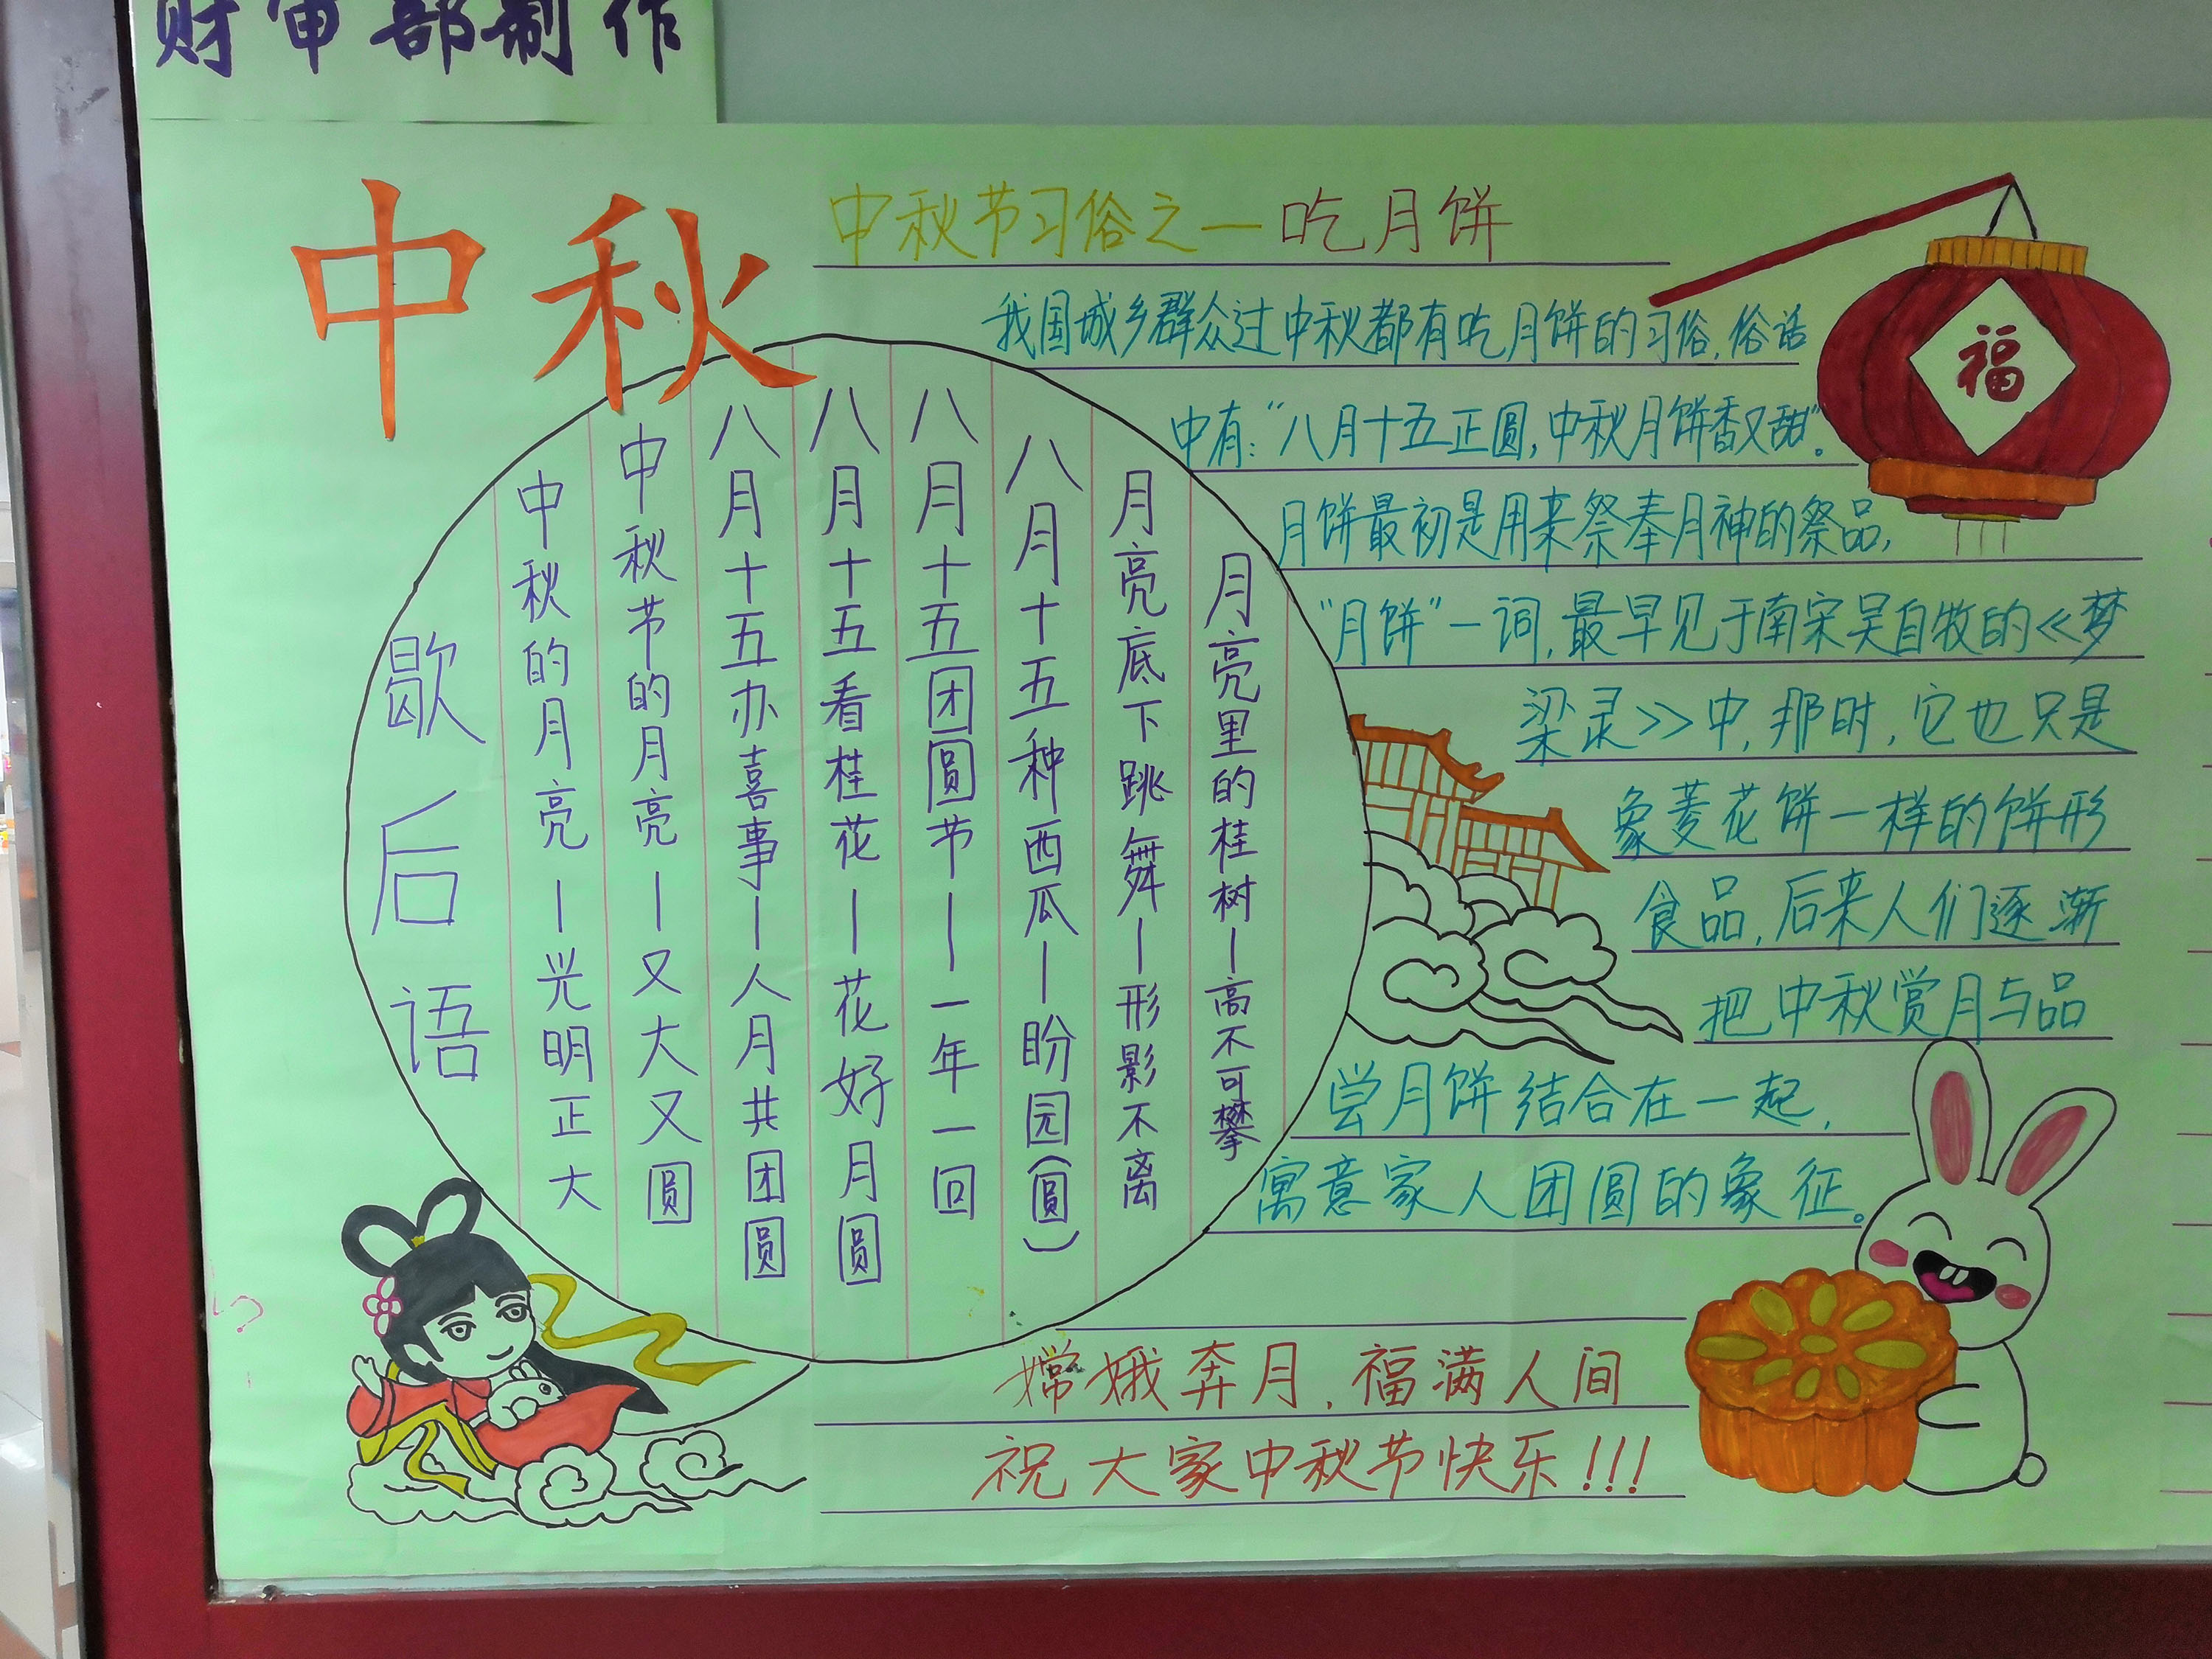 财审部制作
中秋
中秋节习俗之一吃月饼
我国城乡群众过中秋都有吃月饼的习俗,俗话
中有:“八月十五正圆,中秋月饼香又甜”。
月饼最初是用来祭奉月神的祭品,
“月饼”一词,最早见于南宋吴自牧的《梦
梁灵》中,那时,它也只是
象菱花饼一样的饼形
食品,后来人们逐渐
把中秋赏月与品
尝月饼结合在一起,
寓意家人团圆的象征。
福
歇后语
中秋的月亮—光明正大
中秋节的月亮—又大又圆
八月十五办喜事—人月共团圆
八月十五看桂花—花好月圆
八月十五团圆节—一年一回
八月十五种西瓜—盼园(圆)
月亮底下跳舞—形影不离
月亮里的桂树—高不可攀
嫦娥奔月,福满人间
祝大家中秋节快乐!!!